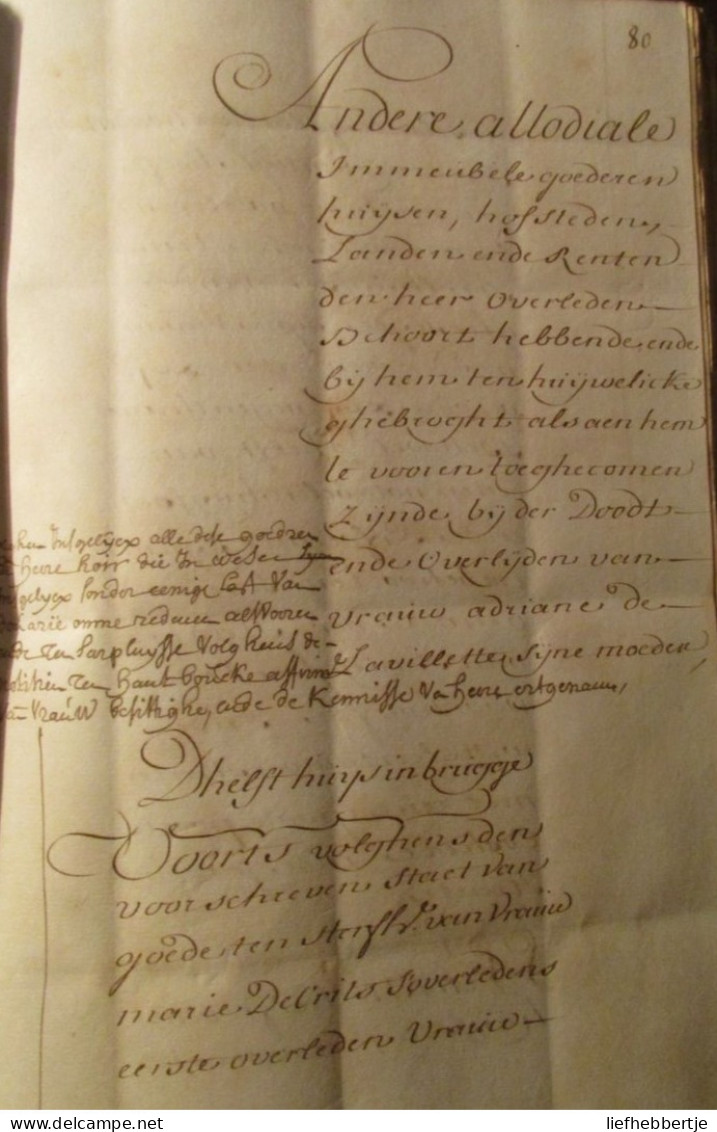 80
Andere allodiale
Immeubele goederen
huijsen, hofsteden,
Landen ende Renten
den heer overleden
behoort hebbende ende
bij hem ten huijwelicke
ghebroght als aen hem
te vooren toeghecomen
zijnde bij der Doodt
ende overlijden van
vrauw adriane de
Lavillette sijne moeder
Insgelycx alle dese goedren
heere hoir die In wesen
sonder eenige last van
omme redenen alvooren
volghens de
ten
van vrauw besittighe, ende de kennisse van heere
Dhelft huijs in brugge
Voorts volghens den
voorschreven staet van
goede ten sterfh. van Vrauw
marie De Crits soverledens
eerste overleden Vrauw
© delcampe.net
liefhebbertje